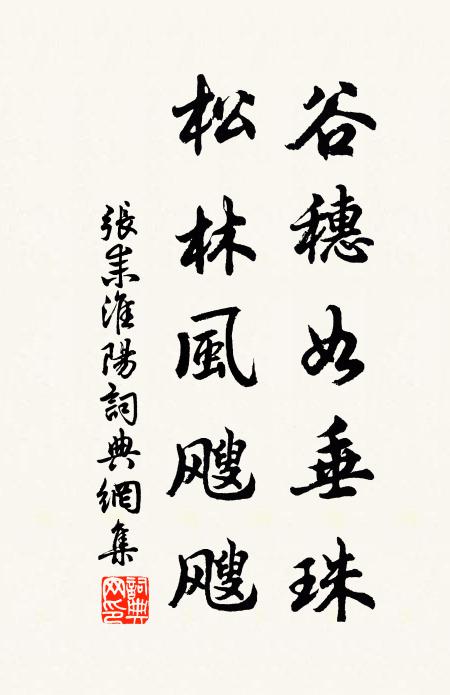 谷穗如垂珠
松林風颼颼
張耒淮陽詞典網集
詞典网印